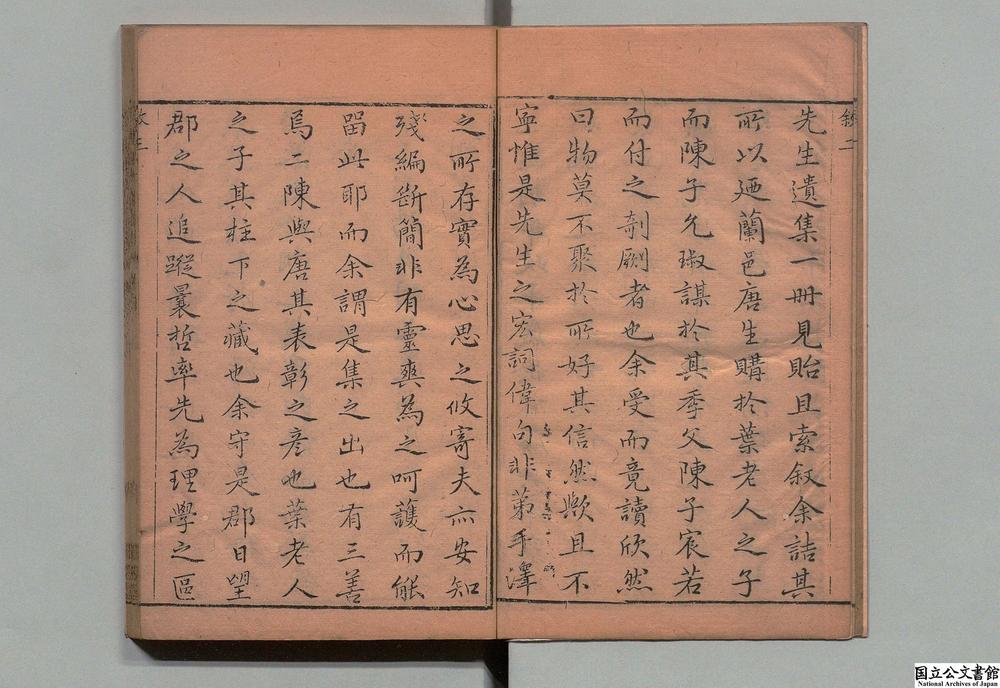 叙二
先生遺集一冊見貽且索叙余詰其
所以廼蘭邑唐生購於葉老人之子
而陳子允琡謀於其季父陳子宸若
而付之剞劂者也余受而竟讀欣然
曰物莫不聚於所好其信然歟且不
寧惟是先生之宏詞偉句非第手澤
之所存實為心思之攸寄夫亦安知
殘編斷簡非有靈爽為之呵護而能
留此耶而余謂是集之出也有三善
焉二陳與唐其表彰之彦也葉老人
之子其柱下之藏也余守是郡日望
郡之人追蹤曩哲率先為理學之區
国立公文書館
National Archives of Japan